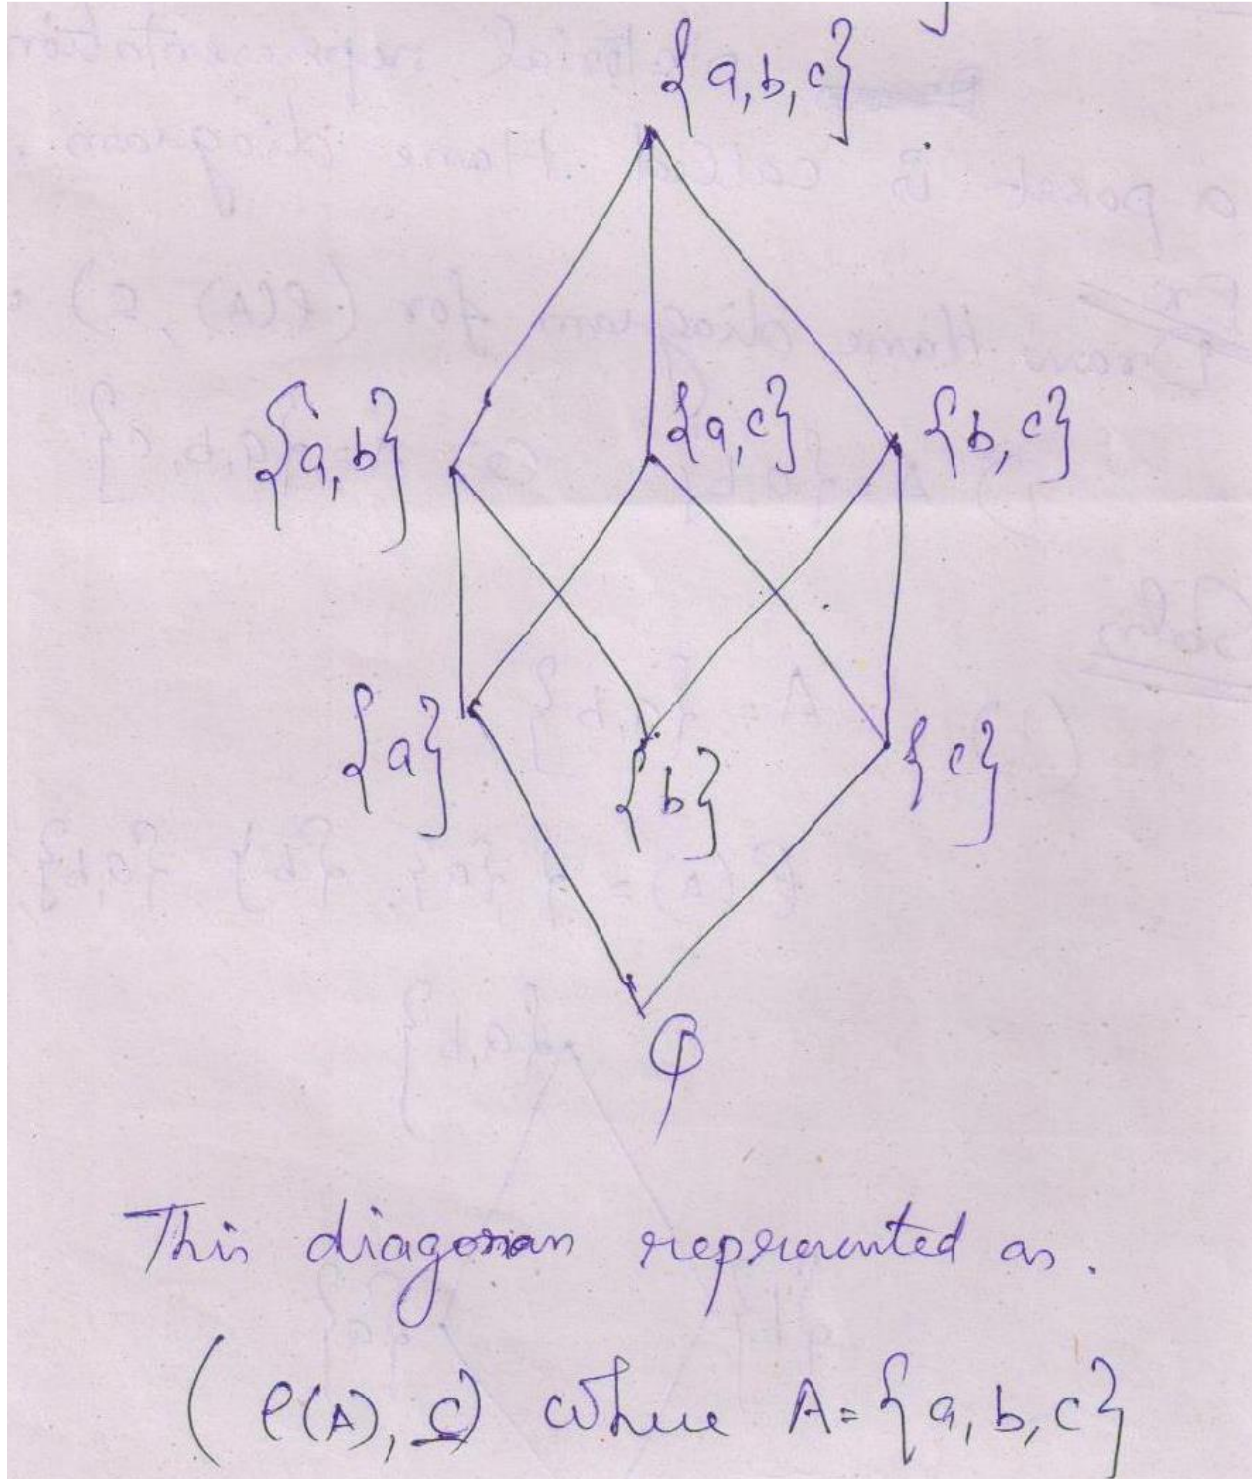 {a,b,c}
{a,b} {a,c} {b,c}
{a} {b} {c}
φ
This diagram represented as.
(P(A), ⊆) where A={a,b,c}